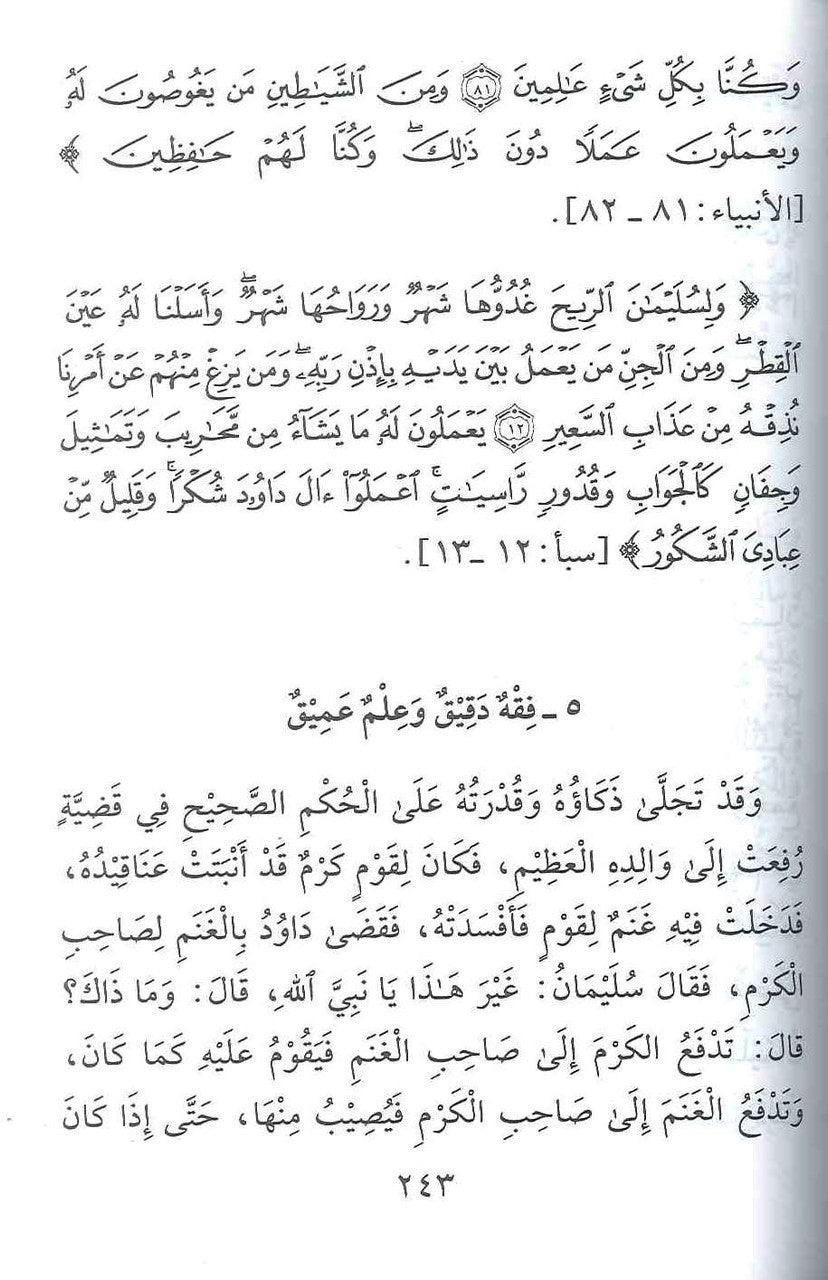 وَكُنَّا بِكُلِّ شَىْءٍ عَٰلِمِينَ ۝٨١ وَمِنَ ٱلشَّيَٰطِينِ مَن يَغُوصُونَ لَهُۥ
وَيَعْمَلُونَ عَمَلًا دُونَ ذَٰلِكَ ۖ وَكُنَّا لَهُمْ حَٰفِظِينَ ﴾
[الأنبياء: ٨١ ـ ٨٢].
﴿ وَلِسُلَيْمَٰنَ ٱلرِّيحَ غُدُوُّهَا شَهْرٌ وَرَوَاحُهَا شَهْرٌ ۖ وَأَسَلْنَا لَهُۥ عَيْنَ
ٱلْقِطْرِ ۖ وَمِنَ ٱلْجِنِّ مَن يَعْمَلُ بَيْنَ يَدَيْهِ بِإِذْنِ رَبِّهِۦ ۖ وَمَن يَزِغْ مِنْهُمْ عَنْ أَمْرِنَا
نُذِقْهُ مِنْ عَذَابِ ٱلسَّعِيرِ ۝١٢ يَعْمَلُونَ لَهُۥ مَا يَشَآءُ مِن مَّحَٰرِيبَ وَتَمَٰثِيلَ
وَجِفَانٍ كَٱلْجَوَابِ وَقُدُورٍ رَّاسِيَٰتٍ ۚ ٱعْمَلُوٓا۟ ءَالَ دَاوُۥدَ شُكْرًا ۚ وَقَلِيلٌ مِّنْ
عِبَادِىَ ٱلشَّكُورُ ﴾ [سبأ: ١٢ ـ ١٣].
٥ ـ فِقْهٌ دَقِيْقٌ وَعِلْمٌ عَمِيْقٌ
وَقَدْ تَجَلَّىٰ ذَكَاؤُهُ وَقُدْرَتُهُ عَلَىٰ الْحُكْمِ الصَّحِيْحِ فِي قَضِيَّةٍ
رُفِعَتْ إِلَىٰ وَالِدِهِ الْعَظِيْمِ، فَكَانَ لِقَوْمٍ كَرْمٌ قَدْ أَنْبَتَتْ عَنَاقِيْدُهُ،
فَدَخَلَتْ فِيْهِ غَنَمٌ لِقَوْمٍ فَأَفْسَدَتْهُ، فَقَضَىٰ دَاوُدُ بِالْغَنَمِ لِصَاحِبِ
الْكَرْمِ، فَقَالَ سُلَيْمَانُ: غَيْرَ هَـٰذَا يَا نَبِيَّ ٱللهِ، قَالَ: وَمَا ذَاكَ؟
قالَ: تَدْفَعُ الكَرْمَ إِلَىٰ صَاحِبِ الْغَنَمِ فَيَقُوْمُ عَلَيْهِ كَمَا كَانَ،
وَتَدْفَعُ الْغَنَمَ إِلَىٰ صَاحِبِ الْكَرْمِ فَيُصِيْبُ مِنْهَا، حَتَّى إِذَا كَانَ
٢٤٣